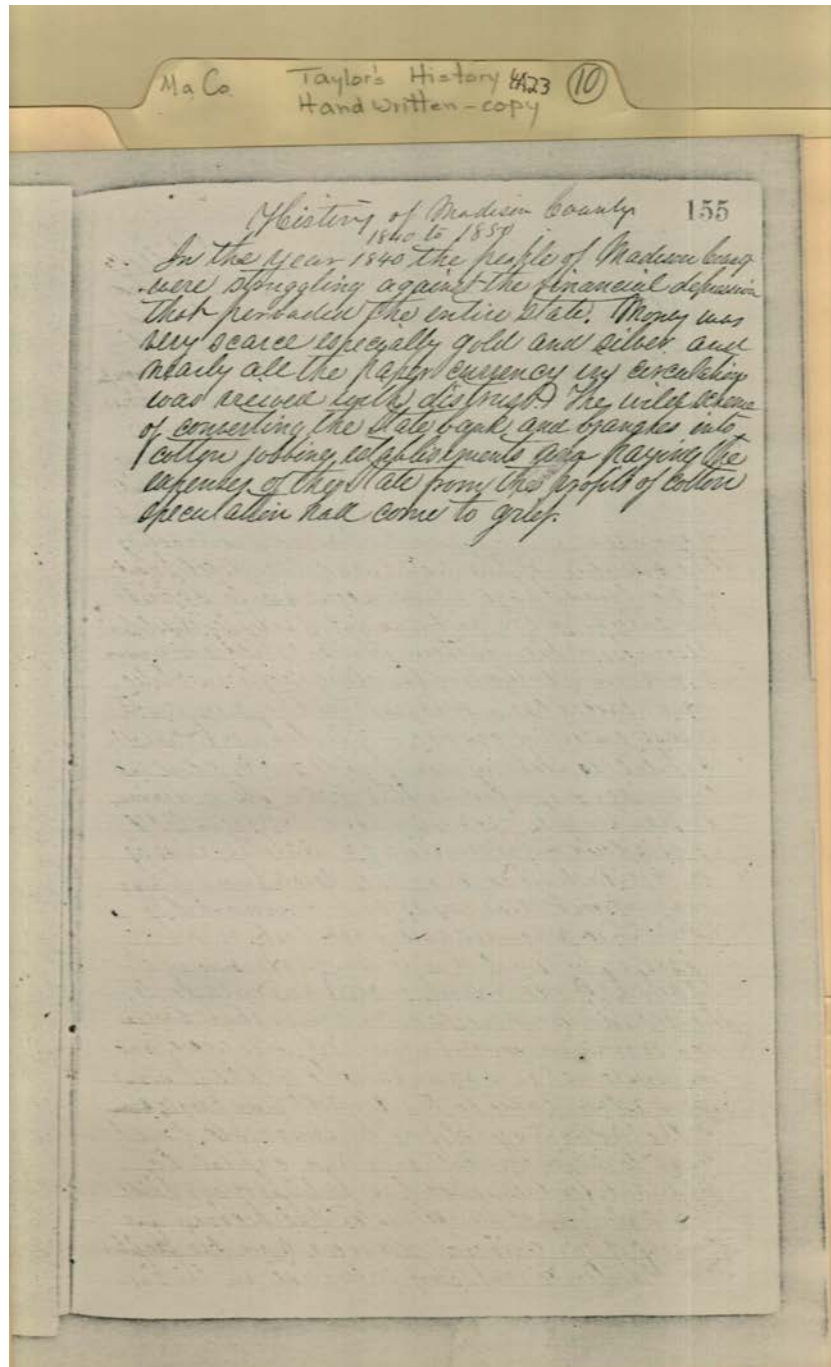 Ma Co. Taylor's History 4A23 10
Handwritten - copy
155
History of Madison County
1840 to 1850
In the year 1840 the people of Madison County
were struggling against the financial depression
that pervaded the entire State. Money was
very scarce especially gold and silver and
nearly all the paper currency in circulation
was received with distrust. The wild scheme
of converting the State bank and branches into
cotton jobbing establishments and paying the
expenses of the State from the profits of cotton
speculation had come to grief.